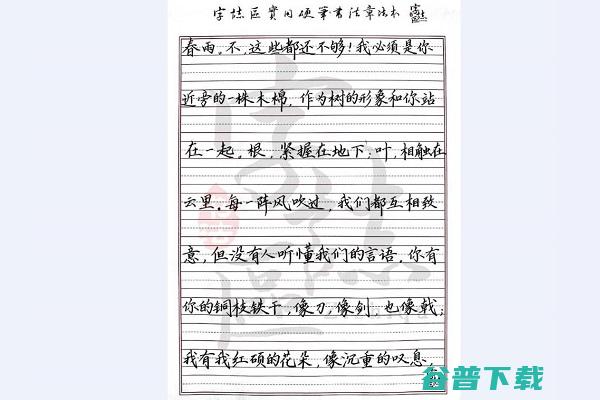 實用硬筆書法章法本
春雨。不,这些都还不够!我必须是你
近旁的一株木棉,作为树的形象和你站
在一起。根,紧握在地下;叶,相触在
云里。每一阵风吹过,我们都互相致
意,但没有人听懂我们的言语。你有
你的铜枝铁干,像刀,像剑,也像戟;
我有我红硕的花朵,像沉重的叹息,
谷普下载